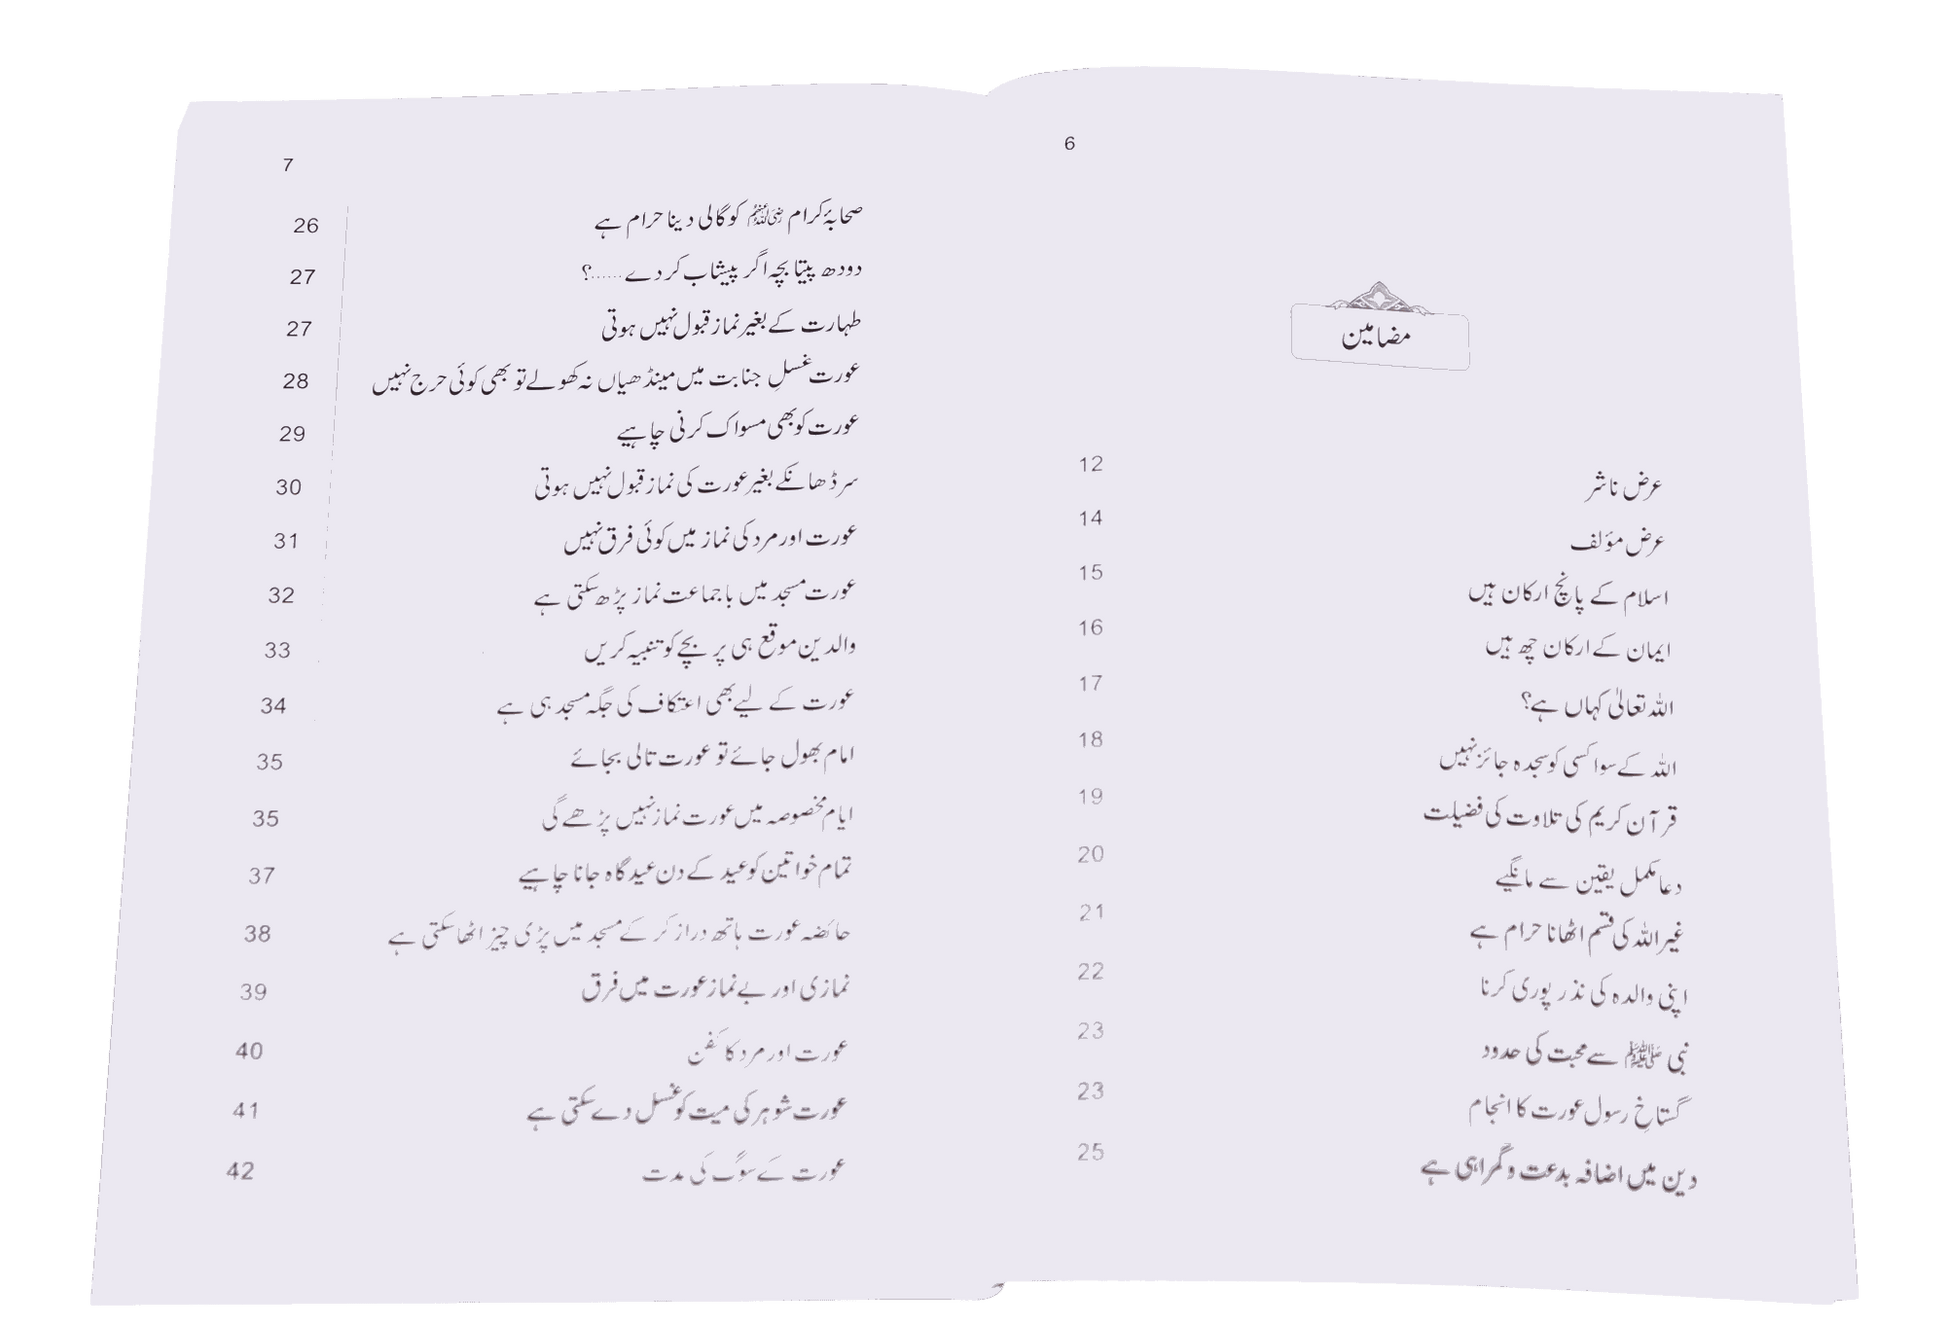 6
مضامین
عرض ناشر 12
عرض مؤلف 14
اسلام کے پانچ ارکان ہیں 15
ایمان کے ارکان چھ ہیں 16
اللہ تعالیٰ کہاں ہے؟ 17
اللہ کے سوا کسی کو سجدہ جائز نہیں 18
قرآن کریم کی تلاوت کی فضیلت 19
دعا مکمل یقین سے مانگیے 20
غیر اللہ کی قسم اٹھانا حرام ہے 21
اپنی والدہ کی نذر پوری کرنا 22
نبی ﷺ سے محبت کی حدود 23
گستاخِ رسول عورت کا انجام 23
دین میں اضافہ بدعت و گمراہی ہے 25
7
صحابۂ کرام رضی اللہ عنہم کو گالی دینا حرام ہے 26
دودھ پیتا بچہ اگر پیشاب کر دے ......؟ 27
طہارت کے بغیر نماز قبول نہیں ہوتی 27
عورت غسلِ جنابت میں مینڈھیاں نہ کھولے تو بھی کوئی حرج نہیں 28
عورت کو بھی مسواک کرنی چاہیے 29
سر ڈھانکے بغیر عورت کی نماز قبول نہیں ہوتی 30
عورت اور مرد کی نماز میں کوئی فرق نہیں 31
عورت مسجد میں باجماعت نماز پڑھ سکتی ہے 32
والدین موقع ہی پر بچے کو تنبیہ کریں 33
عورت کے لیے بھی اعتکاف کی جگہ مسجد ہی ہے 34
امام بھول جائے تو عورت تالی بجائے 35
ایام مخصوصہ میں عورت نماز نہیں پڑھے گی 35
تمام خواتین کو عید کے دن عیدگاہ جانا چاہیے 37
حائضہ عورت ہاتھ دراز کر کے مسجد میں پڑی چیز اٹھا سکتی ہے 38
نمازی اور بے نماز عورت میں فرق 39
عورت اور مرد کا کفن 40
عورت شوہر کی میت کو غسل دے سکتی ہے 41
عورت کے سوگ کی مدت 42